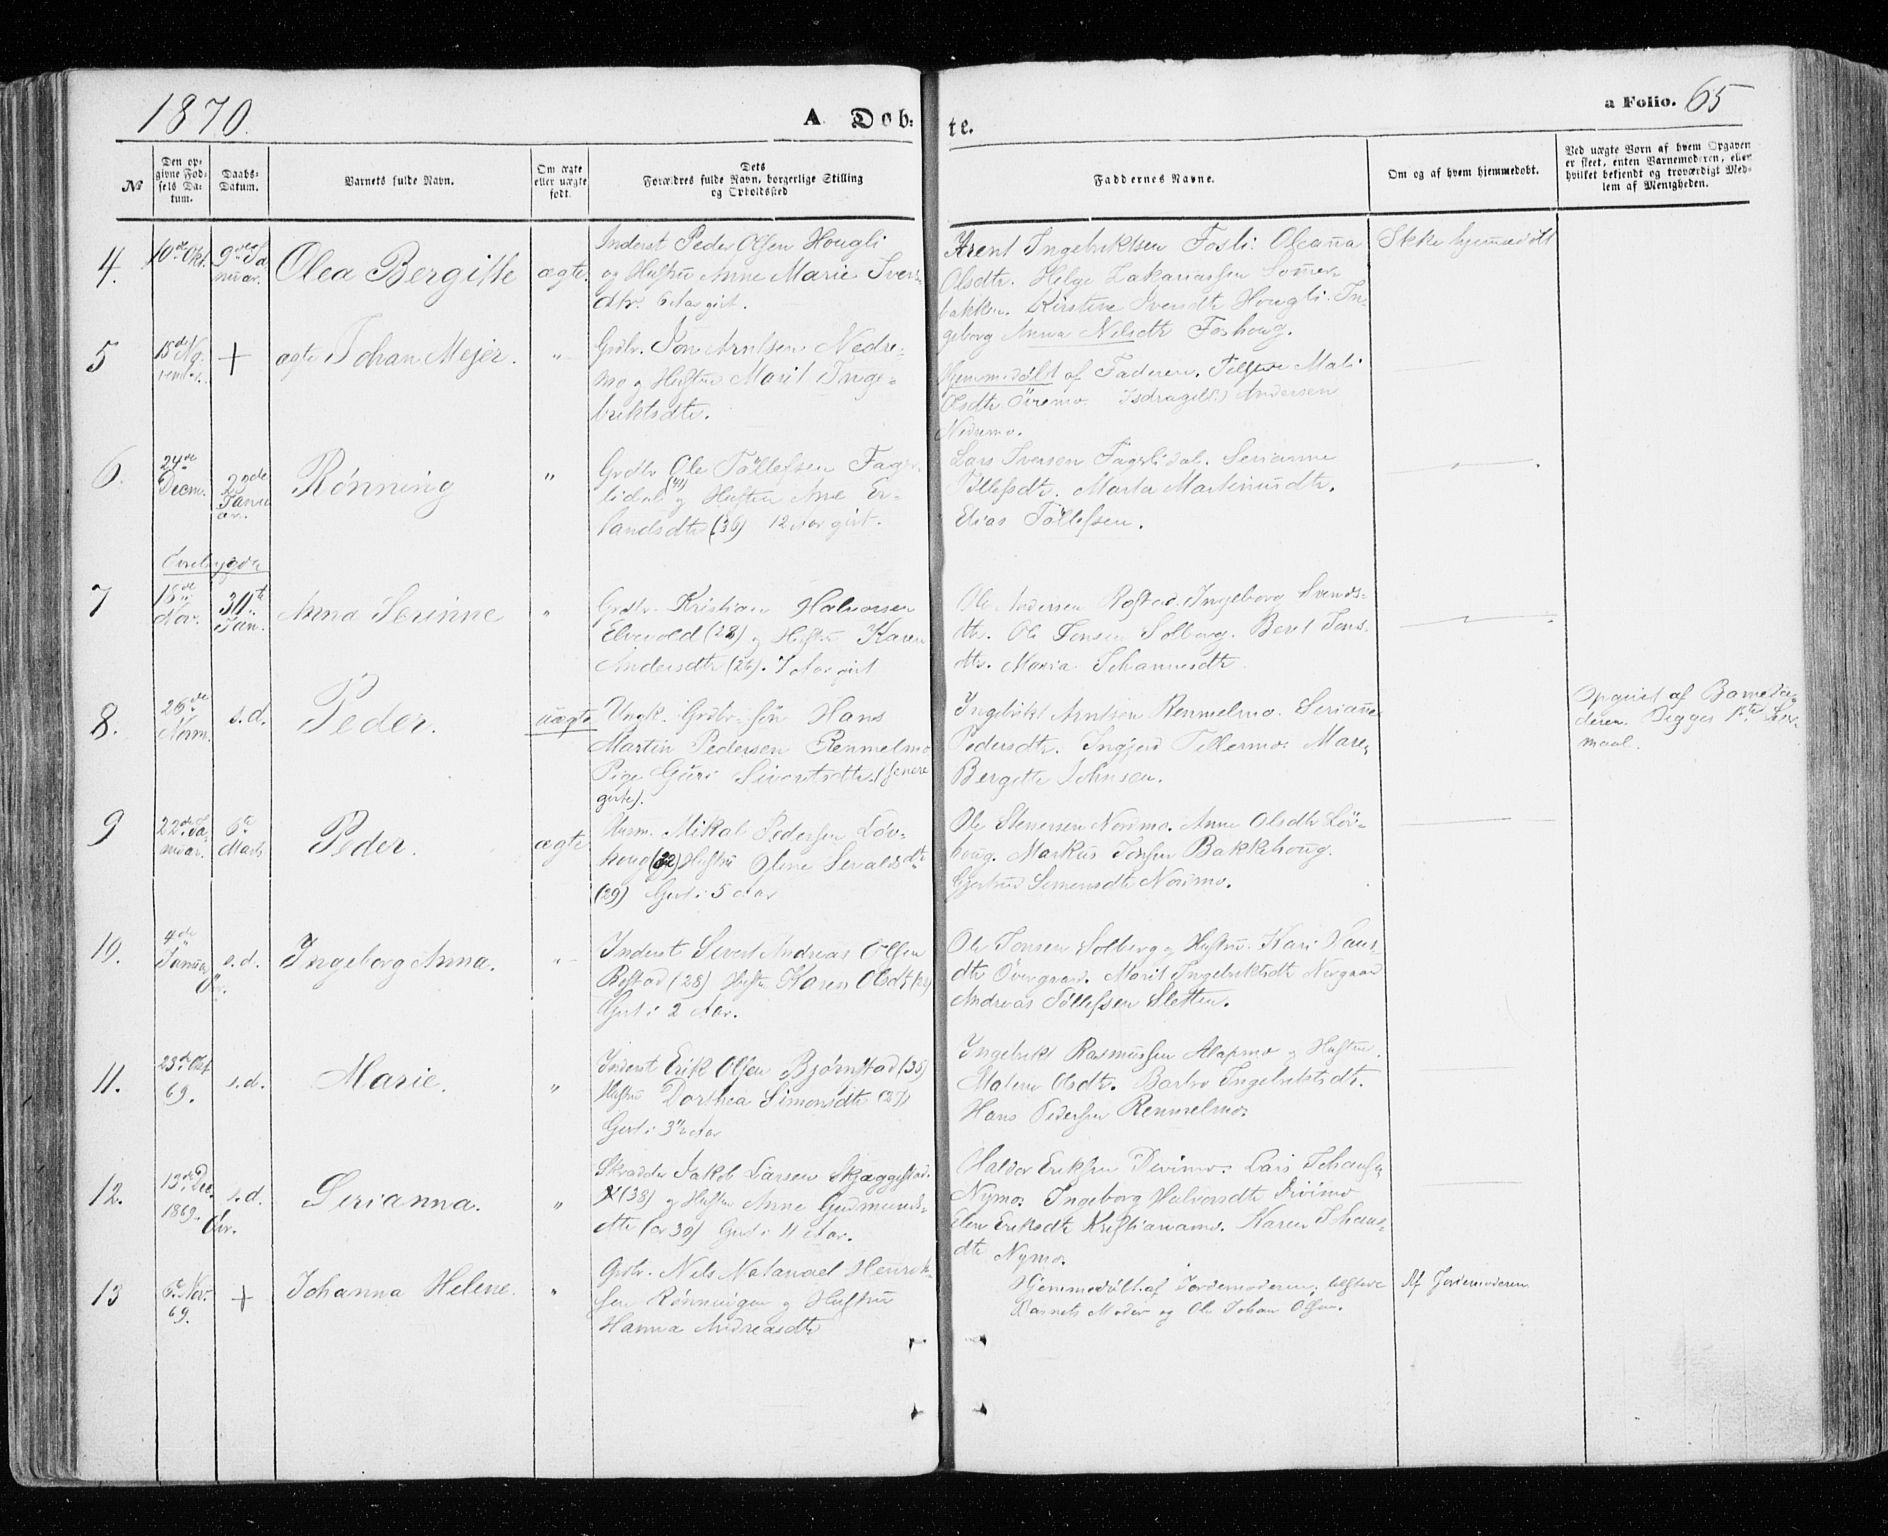 1870.
A Døb:
te.
a Folio. 65
№
Den op-
givne Fød-
sels Da-
tum.
Daabs-
Datum.
Barnets fulde Navn.
Om ægte
eller uægte
født.
Dets
Forældres fulde Navn, borgerlige Stilling
og Opholdssted
Faddernes Navne.
Om og af hvem hjemmedøbt.
Ved uægte Børn af hvem Opgaven
er skeet, enten Barnemoderen, eller
hvilket bekjendt og troværdigt Med-
lem af Menigheden.
4.
10de Okt.
9de Ja
nuar.
Olea Bergitte
ægte
Inderst Peder Olsen Hougli
og Hustru Anne Marie Ivers
dtr. 6 Aar gift.
Arent Ingebriktsen Fosli Oleanna
Olsdtr. Helge Zakariassen Sommer
bakken. Kirstine Iversdtr Hougli. In
geborg Anna Nilsdtr Foshoug.
Ikke hjemmedøbt
5
15de No
vember.
+
ægte Johan Mejer.
"
Grdbr. Jon Arntsen Nedre-
mo og Hustru Marit Inge-
briktsdtr.
Hjemmedøbt af Faderen. Mali
Olsdtr Øremo. Andersen
Nedremo.
6.
24de
Decm.
22de
Janu
ar.
Rønning
"
Grdbr Ole Tollefsen Fager
lidal (41) og Hustru Ane Er-
landsdtr (36) 12 Aar gift.
Lars Iversen Fagerlidal. Serianne
Tollefsdtr. Marta Martinusdtr.
Elias Tollefsen.
Øvrebygde
7
15de
Nov.
30te
Jan.
Anna Serinne
"
Grdbr. Kristian Halvorsen
Elvevold (28) og Hustru Karen
Andersdtr (26). 7 Aar gift
Ole Andersen Rostad. Ingeborg Svends-
dtr. Ole Jonsen Solberg. Beret Jons
dtr. Maria Johannesdtr.
8.
26de
Novm.
s.d.
Peder.
uægte
Ungk. Grdbr. søn Hans
Martin Pedersen Renmelmo
Pige Guri Sivertsdtr (senere
gifte).
Ingebrikt Arntsen Renmelmo. Serianne
Pedersdtr. Ingjerd Tellermo. Mare
Bergitte Johnsen.
Opgivet af Barnefa-
deren. Begges 1ste Leier
maal.
9
22de Ja
nuar.
6te
Marts
Peder.
ægte
Husm. Mikal Pedersen Løv-
houg (32) Hustru Oline Sevaldsdtr
(29) Gift i 5 Aar
Ole Stenersen Nordmo. Anne Olsdtr Løv-
houg. Markus Jonsen Bakkehoug.
Gjertrud Simonsdtr Nordmo.
10.
4de
Januar
Øv.
s.d.
Ingeborg Anna.
Inderst Sivert Andreas Olsen
Rostad (28) Hustr Karen Olsdtr
Gift i 2 Aar.
Ole Jonsen Solberg og Hustru. Kari Hans
dtr Overgaard. Marit Ingebriktsdtr Nergaard
Andreas Tollefsen Sletten.
11.
23de Okt
69.
s.d.
Marie.
"
Inderst Erik Olsen Bjørnstad (35)
Hustru Dorthea Simonsdtr (27)
Gift i 3½ Aar
Ingebrikt Rasmussen Alapmo og Hustru
Malene Olsdtr. Barbro Ingebriktsdtr.
Hans Pedersen Renmelmo.
12.
13de Dec.
1869.
Øv.
s.d.
Serianna.
"
Skrædder Jakob Larsen Skjæggestad
(38) og Hustru Anne Gudmunds-
dtr (30) Gift i 4 Aar.
Haldor Eriksen Divimo. Lars Johansen
Nymo. Ingeborg Halvorsdtr Divimo
Elen Eriksdtr Kristianamo. Karen Johans
dtr Nymo.
13
6te Nov.
69.
+
Johanna Helene.
"
Grdbr. Nils Natanael Henrik-
sen Rønningen og Hustru
Hanna Andreasdtr
Hjemmedøbt af Jordemoderen, tilstede
Barnets Moder og Ole Johan Olsen.
Af Jordemoderen